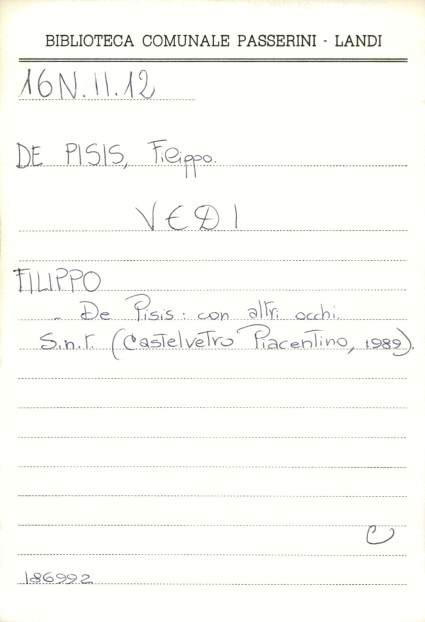 BIBLIOTECA COMUNALE PASSERINI - LANDI
16N.II.12
DE PISIS, Filippo.
VEDI
FILIPPO
- De Pisis: con altri occhi.
S.n.t. (Castelvetro Piacentino, 1989).
C
186992